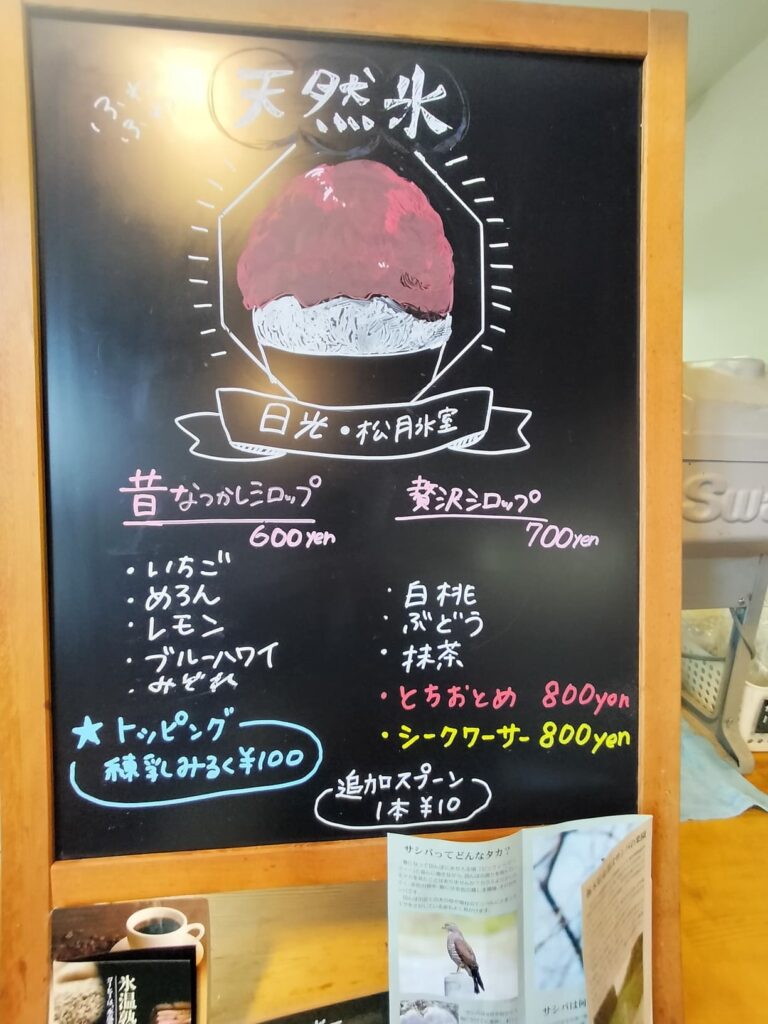 ふわ
ふわ
天然氷
日光・松月氷室
昔なつかしシロップ
600yen
・いちご
・めろん
・レモン
・ブルーハワイ
・みぞれ
★トッピング
練乳みるく¥100
贅沢シロップ
700yen
・白桃
・ぶどう
・抹茶
・とちおとめ 800yen
・シークワーサー 800yen
追加スプーン
1本 ¥10
Swa
サシバってどんなタカ？
サシバは何
氷温熟